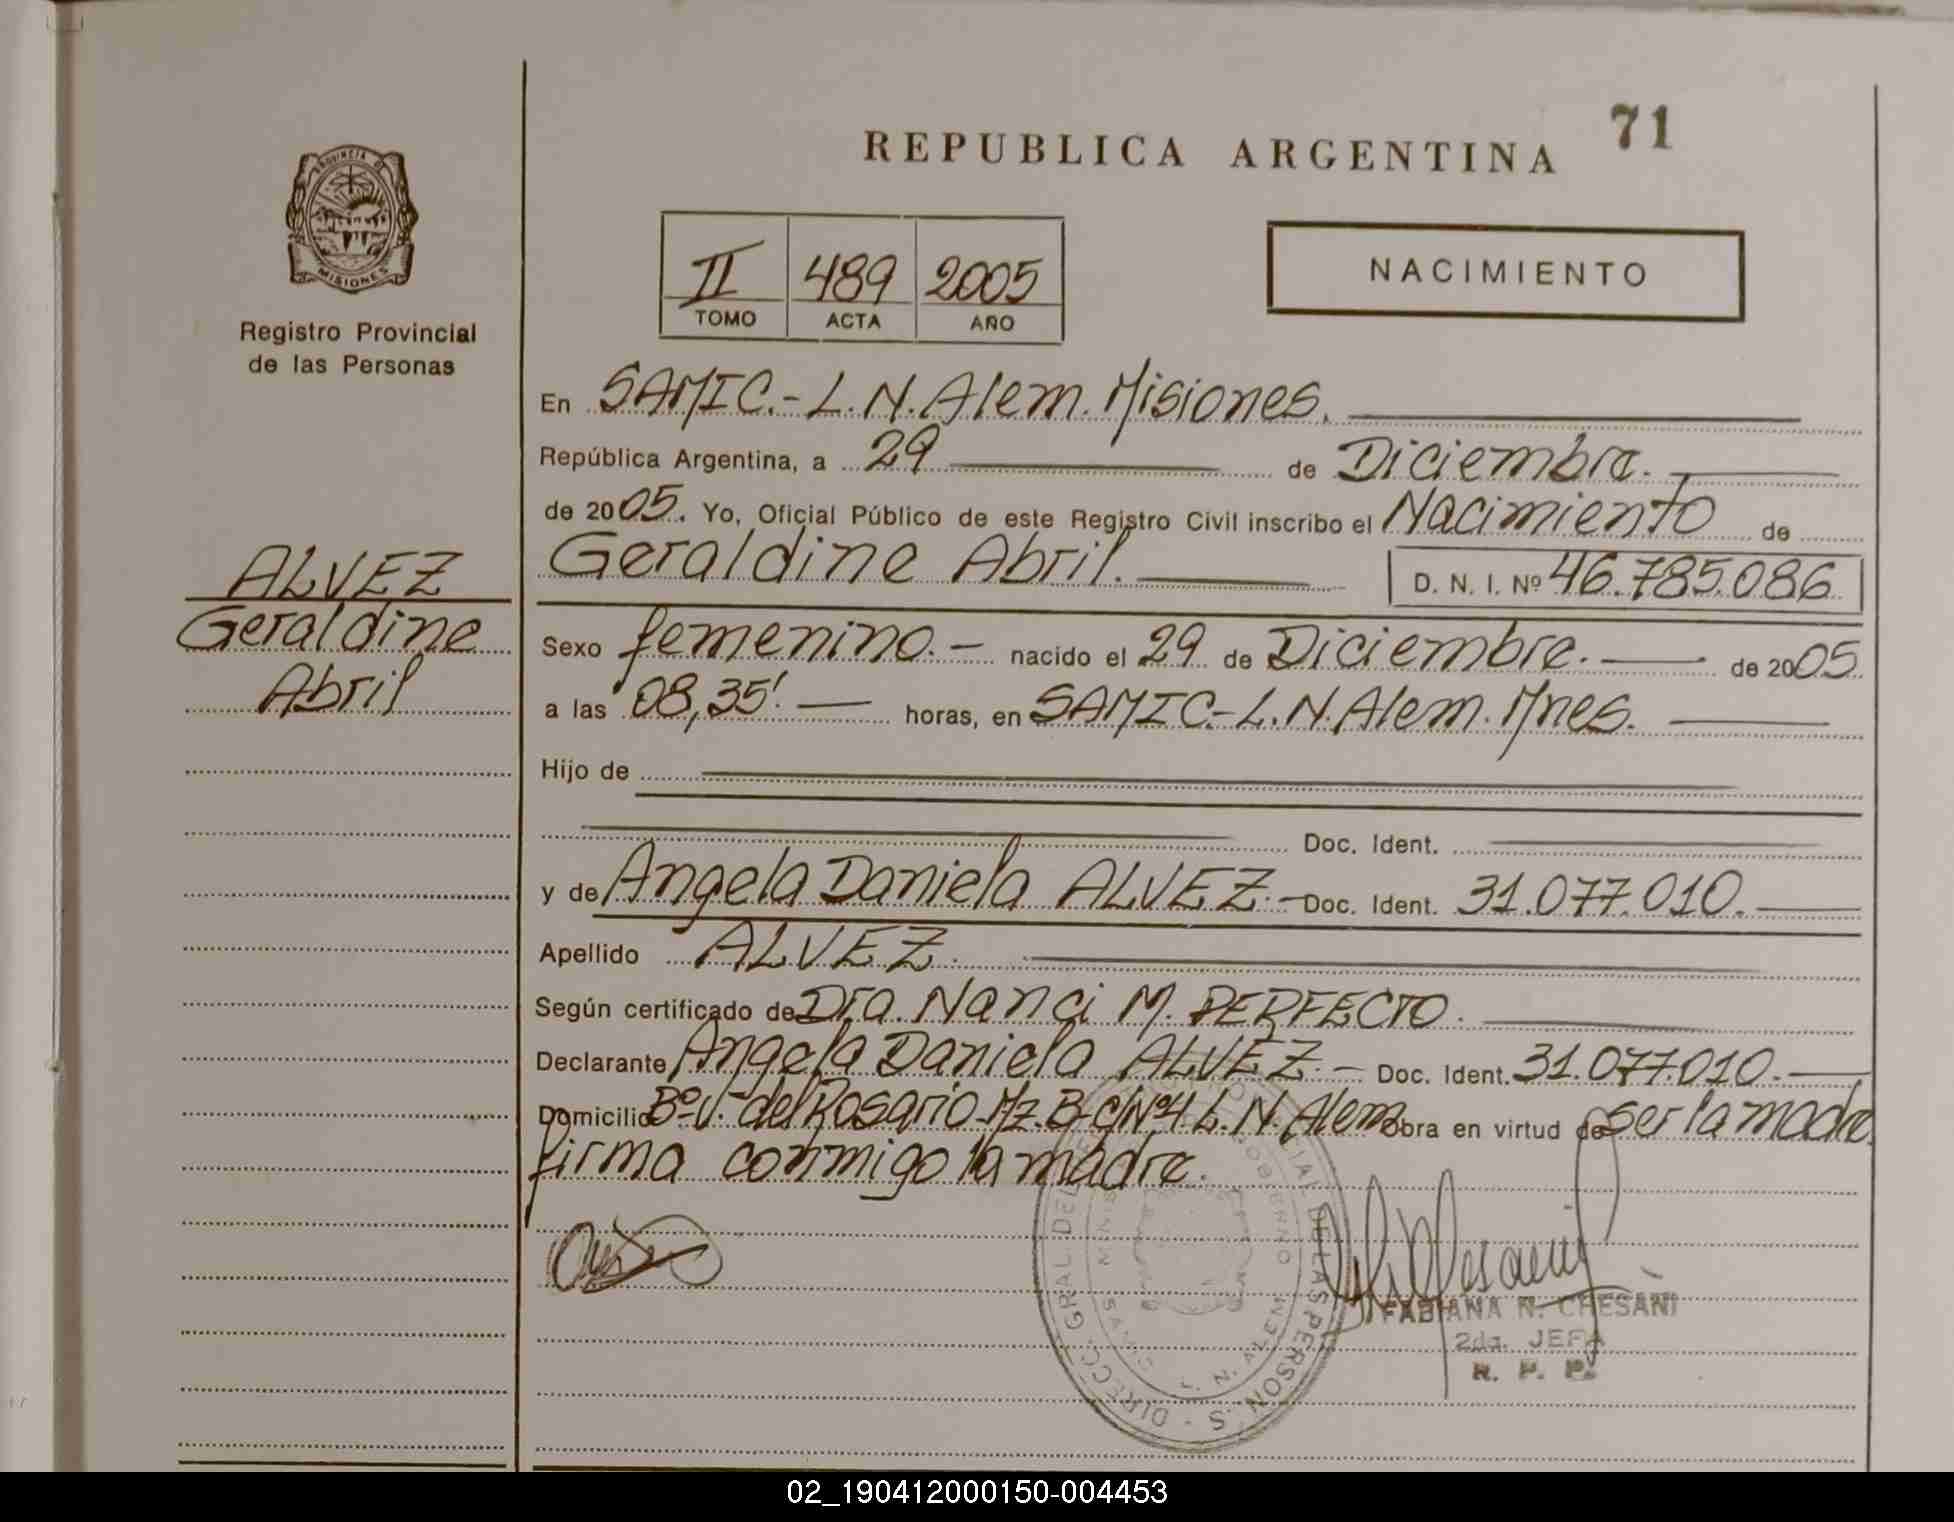 71
REPUBLICA ARGENTINA
PROVINCIA DE
MISIONES
Registro Provincial
de las Personas
II 489 2005
TOMO ACTA AÑO
NACIMIENTO
En SAMIC.- L. N. Alem. Misiones.
República Argentina, a 29 de Diciembre.
de 2005. Yo, Oficial Público de este Registro Civil inscribo el Nacimiento de
Geraldine Abril. D. N. I. Nº 46.785.086
ALVEZ
Geraldine
Abril
Sexo femenino.- nacido el 29 de Diciembre. de 2005.
a las 08,35'. horas, en SAMIC.- L. N. Alem. Mnes.
Hijo de
Doc. Ident.
y de Angela Daniela ALVEZ.- Doc. Ident. 31.077.010.
Apellido ALVEZ.
Según certificado de Dra. Nanci M. PERFECTO.
Declarante Angela Daniela ALVEZ.- Doc. Ident. 31.077.010.
Domicilio Bº. V. del Rosario. Mz. B- C/Nº4 L. N. Alem obra en virtud de ser la madre
firma conmigo la madre.
FABIANA N. CHESANI
2da. JEFA
R. P. P.
02_190412000150-004453